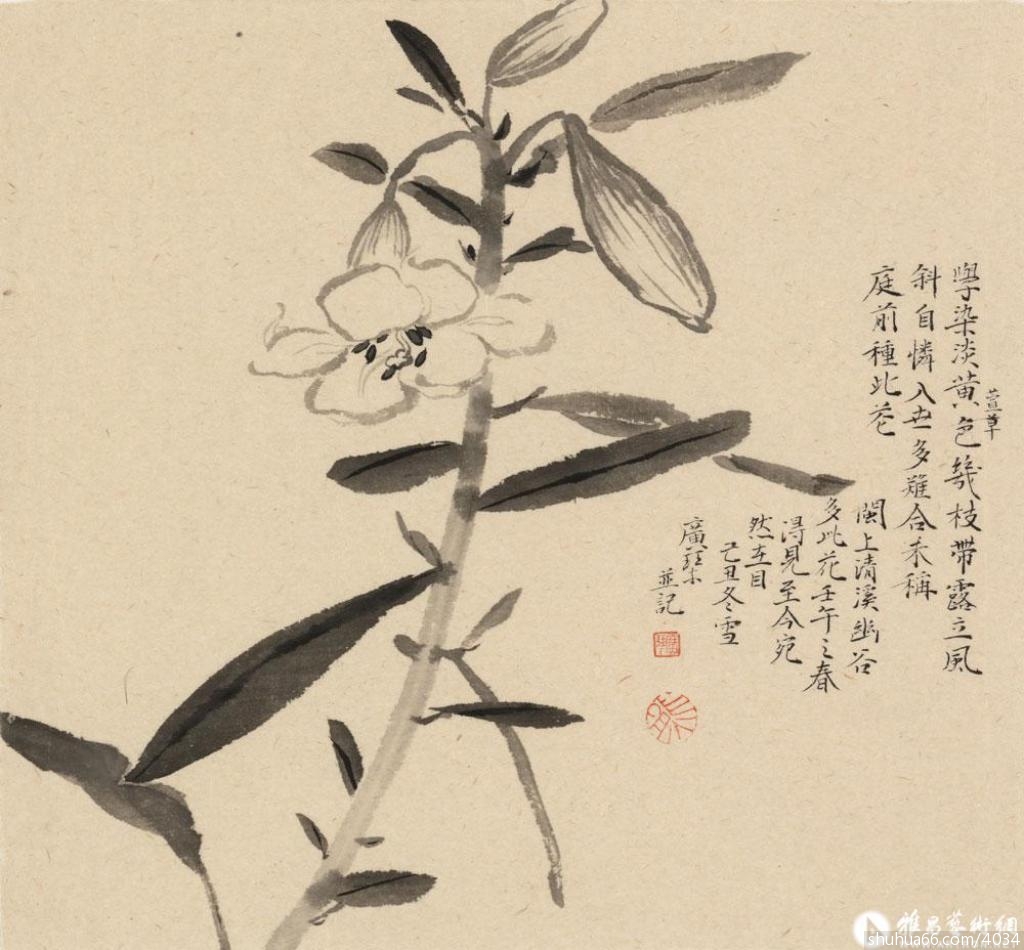 學染淡黃色幾枝帶露立風
萱草
斜自憐入世多難合未稱
庭前種此花
閩上清溪幽谷
多此花壬午之春
得見至今宛
然在目
己丑冬雪
廣
並記
雅昌藝術網
shuhua66.com/4034